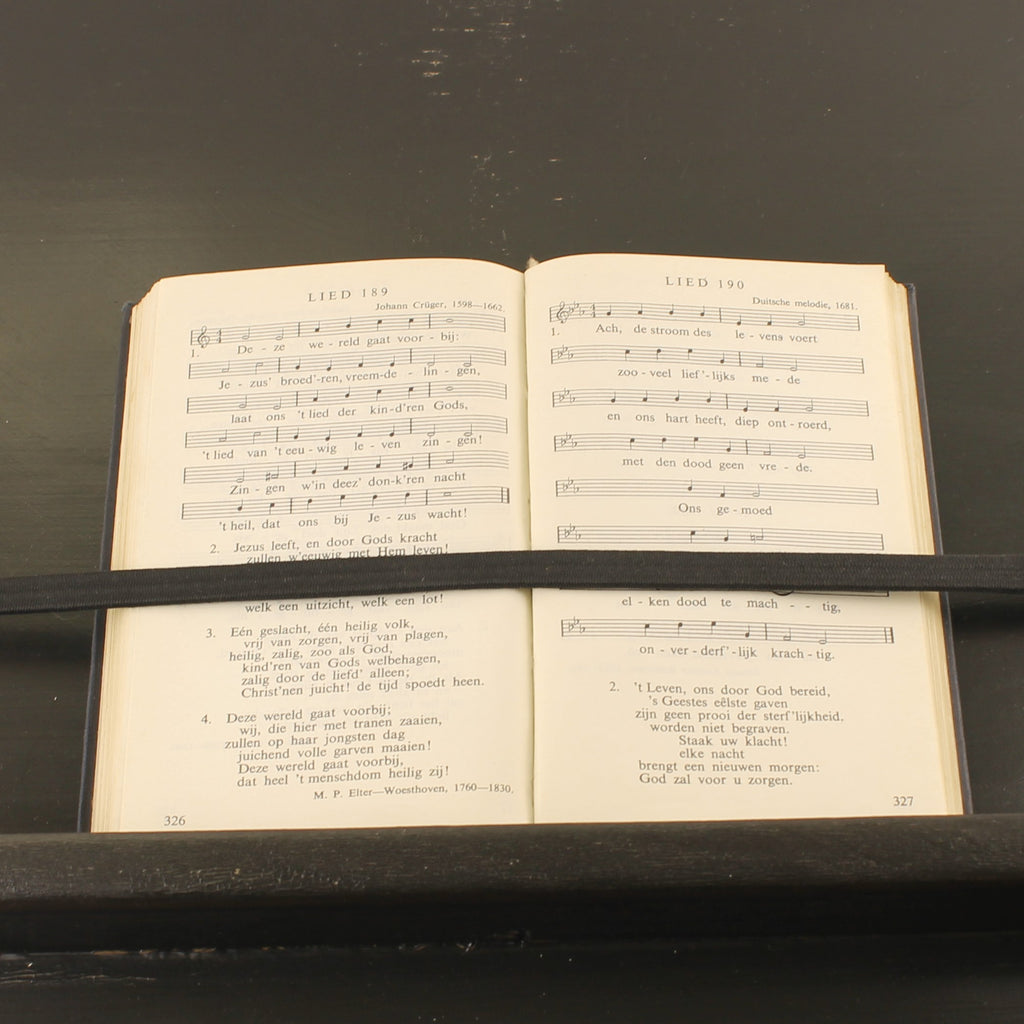 LIED 189
Johann Crüger, 1598—1662.
1. De - ze we - reld gaat voor - bij:
Je - zus' broed'-ren, vreem-de - lin - gen,
laat ons 't lied der kin-d'ren Gods,
't lied van 't eeu - wig le - ven zin - gen!
Zin - gen w'in deez' don-k'ren nacht
't heil, dat ons bij Je - zus wacht!
2. Jezus leeft, en door Gods kracht
zullen w'eeuwig met Hem leven!
welk een uitzicht, welk een lot!
3. Eén geslacht, één heilig volk,
vrij van zorgen, vrij van plagen,
heilig, zalig, zoo als God,
kind'ren van Gods welbehagen,
zalig door de liefd' alleen;
Christ'nen juicht! de tijd spoedt heen.
4. Deze wereld gaat voorbij;
wij, die hier met tranen zaaien,
zullen op haar jongsten dag
juichend volle garven maaien!
Deze wereld gaat voorbij,
dat heel 't menschdom heilig zij!
M. P. Elter—Woesthoven, 1760—1830.
326
LIED 190
Duitsche melodie, 1681.
1. Ach, de stroom des le - vens voert
zoo - veel lief'-lijks me - de
en ons hart heeft, diep ont - roerd,
met den dood geen vre - de.
Ons ge - moed
el - ken dood te mach - - tig,
on - ver - derf'-lijk krach - tig.
2. 't Leven, ons door God bereid,
's Geestes eêlste gaven
zijn geen prooi der sterf'lijkheid,
worden niet begraven.
Staak uw klacht!
elke nacht
brengt een nieuwen morgen:
God zal voor u zorgen.
327